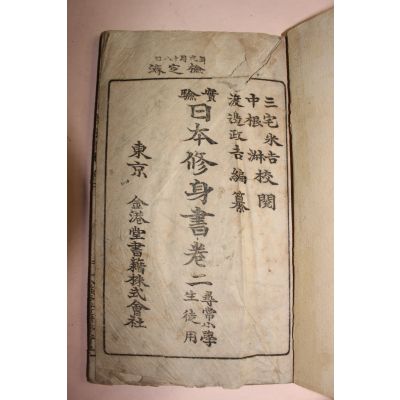 檢定濟
三宅米吉
中根淑 校閲
渡邉政吉編纂
實驗
日本修身書卷二
尋常小學
生徒用
東京
金港堂書籍株式會社